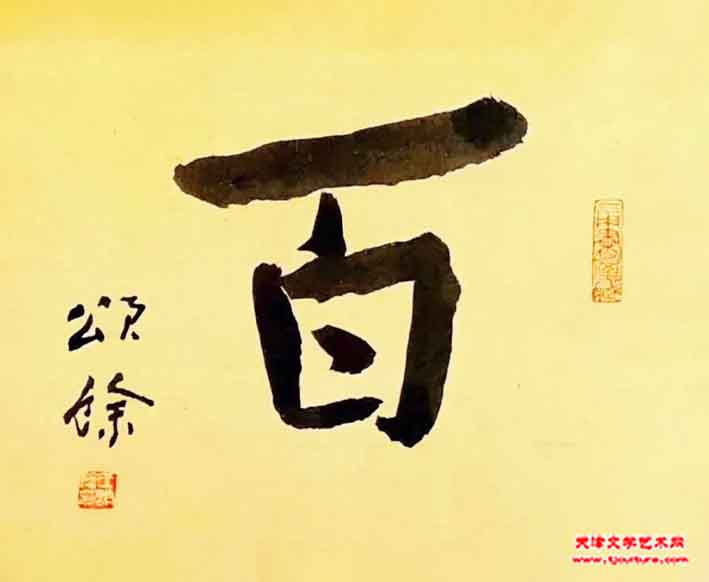 百
頌餘
天津文学艺术网
www.tjculture.com